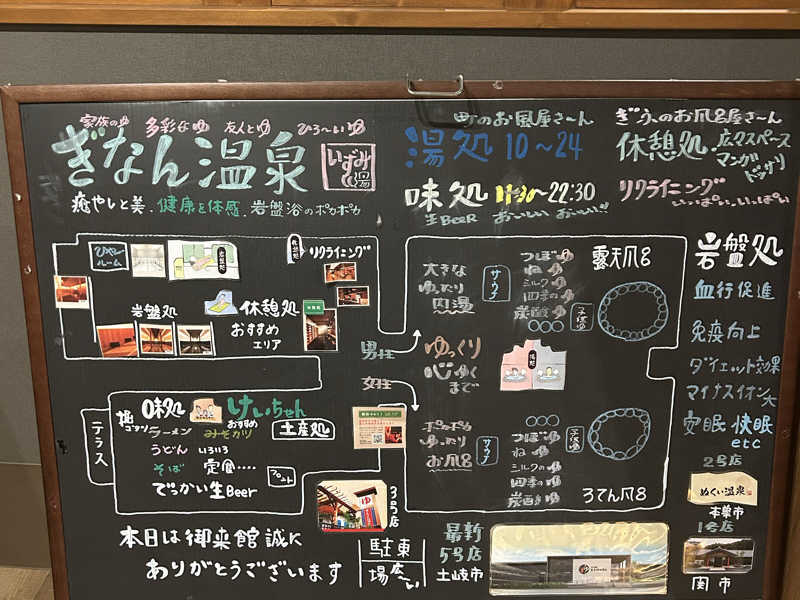 家族のゆ 多彩なゆ 友人とゆ ひろ〜いゆ
ぎなん温泉
いずみの湯
癒やしと美、健康を体感、岩盤浴のポカポカ
町のお風屋さ〜ん
湯処 10〜24
味処 11:30〜22:30
生BEER おいしい おいしい!!
ぎふのお風呂屋さ〜ん
休憩処 広々スペース
マンガ
ドッサリ
リクライニング
いっぱい、いっぱい
ひやっ
ルーム
リクライニング
岩盤処
休憩処
おすすめ
エリア
男性
女性
大きな
ゆったり
内湯
サウナ
つぼゆ
ねゆ
ミルクゆ
四季のゆ
炭酸ゆ
露天風呂
ゆっくり
心ゆく
まで
ポカポカ
ゆったり
お風呂
サウナ
つぼゆ
ねゆ
ミルクのゆ
四季のゆ
炭酸ゆ
ろてん風呂
岩盤処
血行促進
免疫向上
ダイエット効果
マイナスイオン大
安眠 快眠
etc
テラス
味処
けいちゃん
おすすめ
ラーメン
みそカツ
うどん いろいろ
そば 定食‥‥
でっかい生Beer
土産処
フロント
本日は御来館誠に
ありがとうございます
3号店
駐車
場広い
最新
5号店
土岐市
2号店
ぬくい温泉
本巣市
1号店
関市